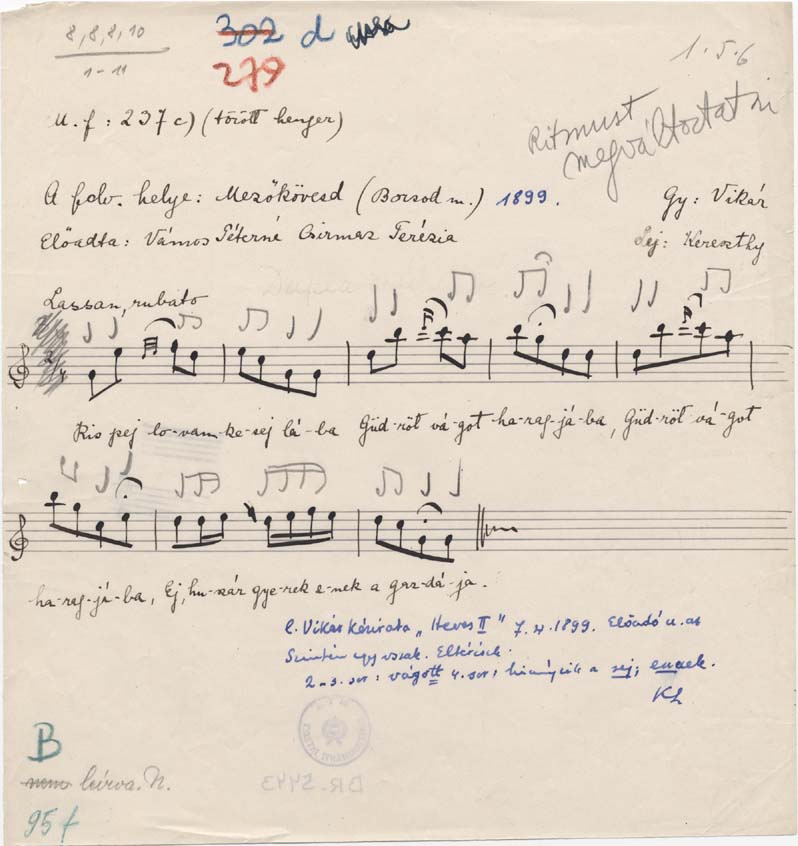 8,8,8,10
1-11
302 d
279
1.5.6
M.f: 237c) (törött henger)
Ritmust
megváltoztatni
A felv. helye: Mezőkövesd (Borsod m.) 1899. Gy: Vikár
Előadta: Vámos Péterné Csirmaz Terézia Lej: Kereszthy
Lassan, rubato
Kis pej lo-vam ke-sej lá-ba Güd-röt vá-got ha-rag-já-ba, Güd-röt vá-got
ha-rag-já-ba, Ej, hu-szár gye-rek e-nek a gaz-dá-ja.
l. Vikár kézirata "Heves II" 7. 1899. Előadó u.az
Szintén egy versszak. Eltérések:
2-3. sor: vágott 4. sor: hiányzik a sej; ennek.
KL
B
nem leírva. N.
DR. 5443
95 f